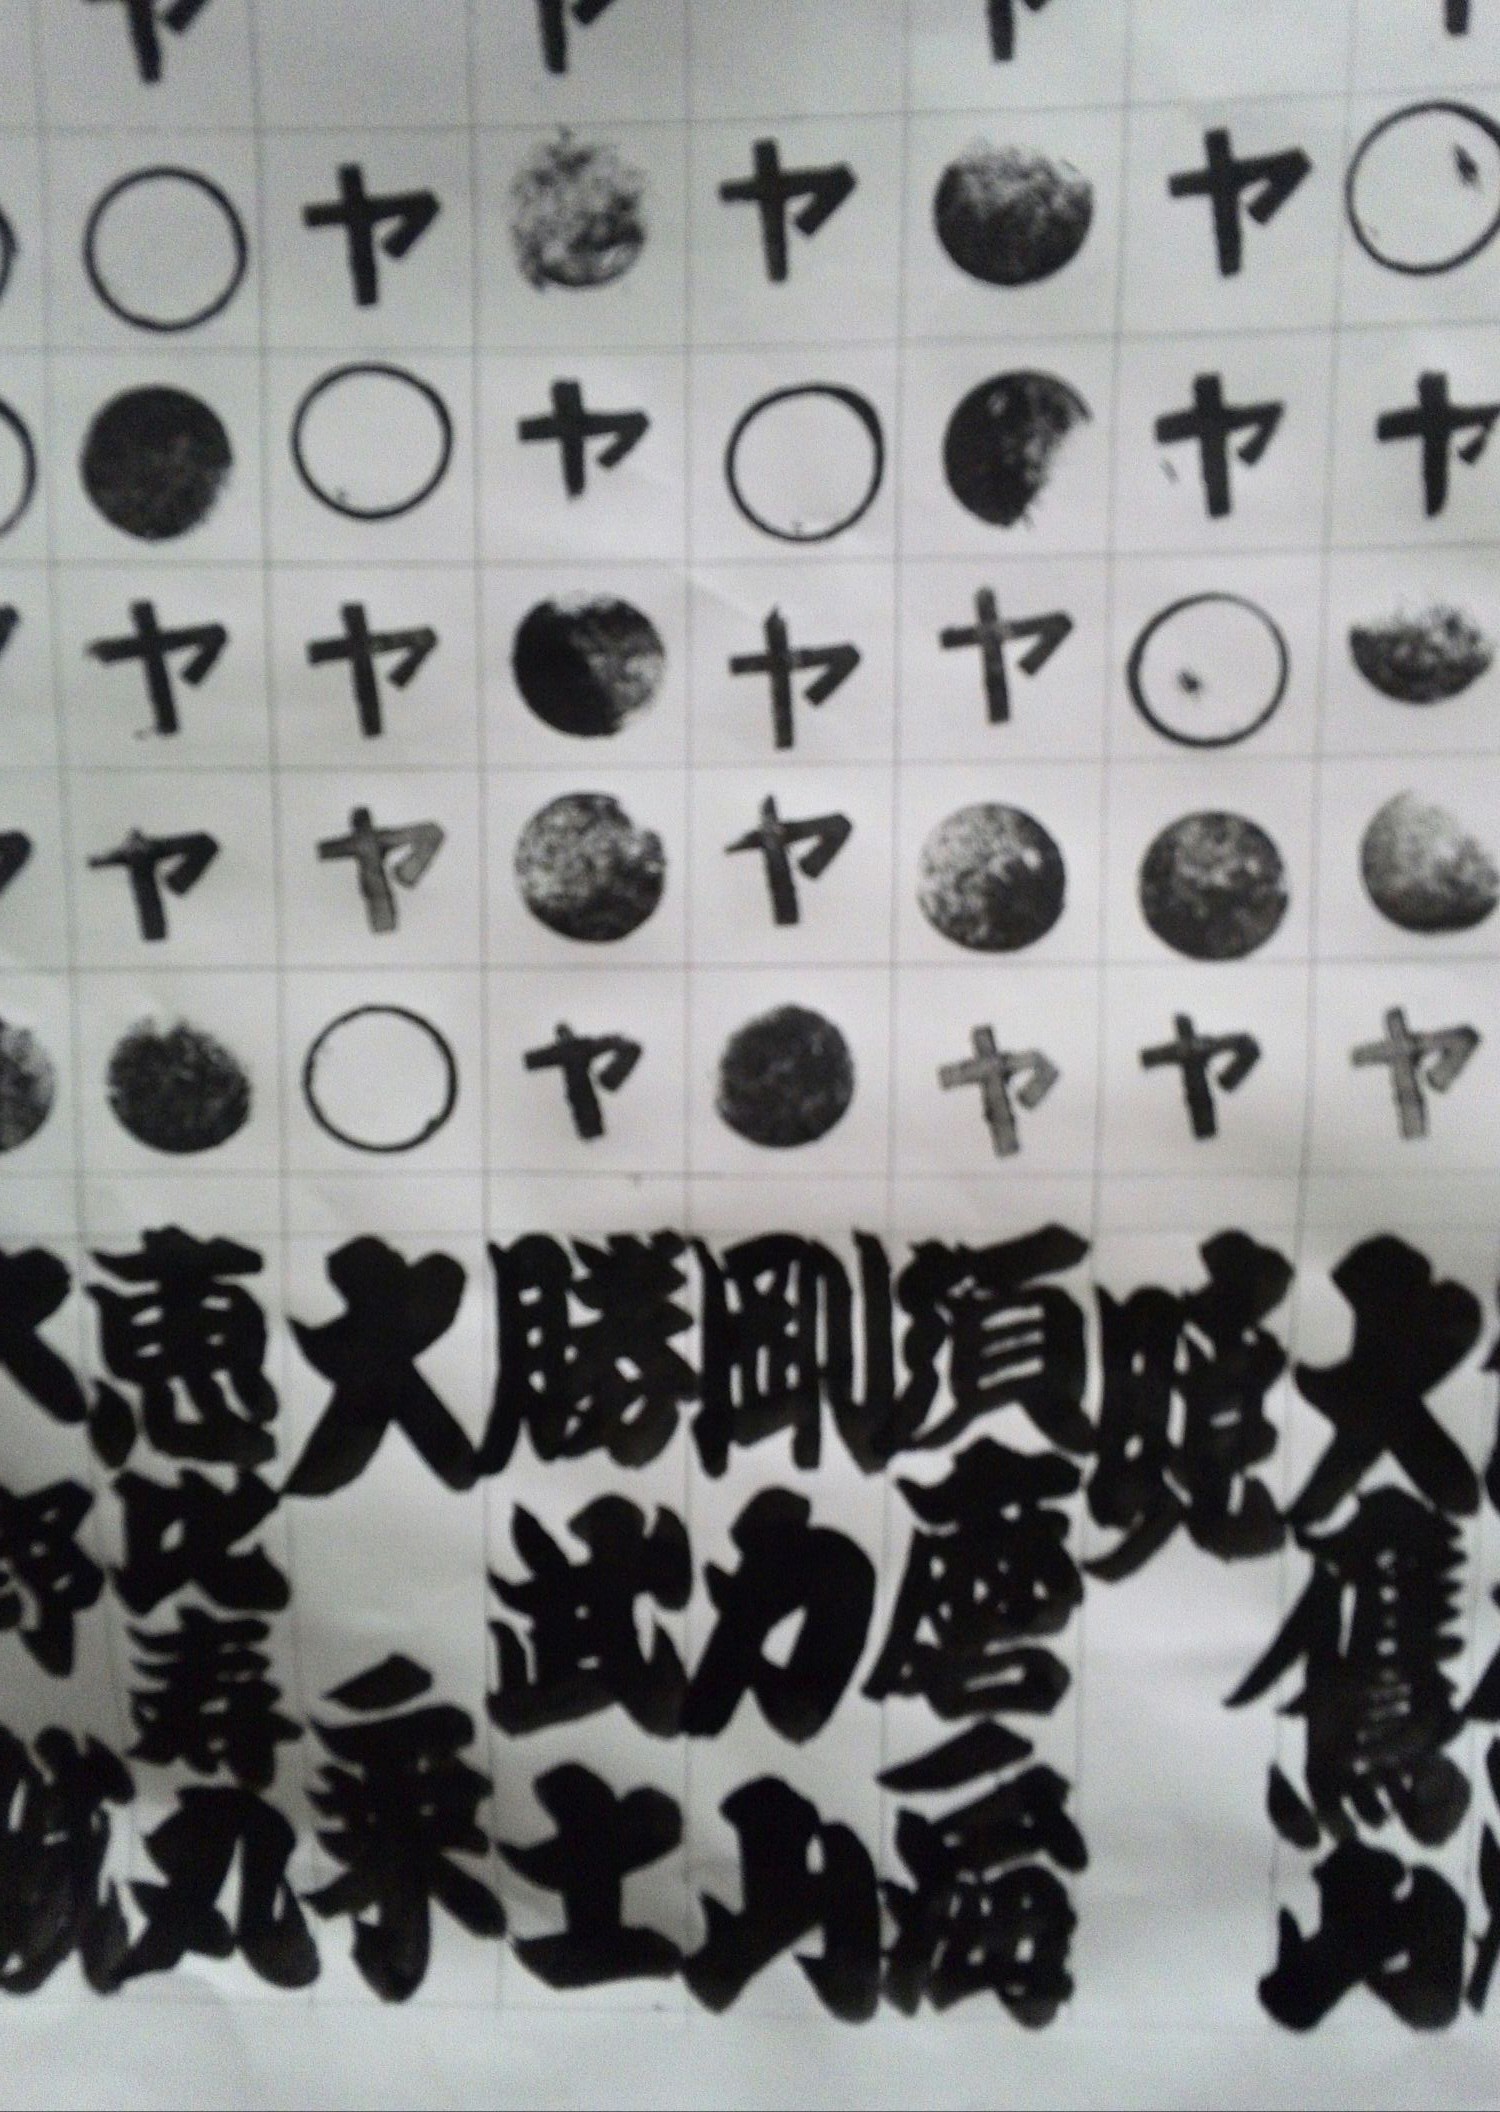 ヤ○ヤ●●ヤ大鷹山
ヤヤ○●ヤ暁
ヤ●●ヤ●ヤ須磨ノ海
ヤ○ヤヤ●剛力山
ヤ●ヤ●●ヤ勝武士
ヤ○ヤヤ○大乗
ヤ○●ヤヤ●恵比寿丸